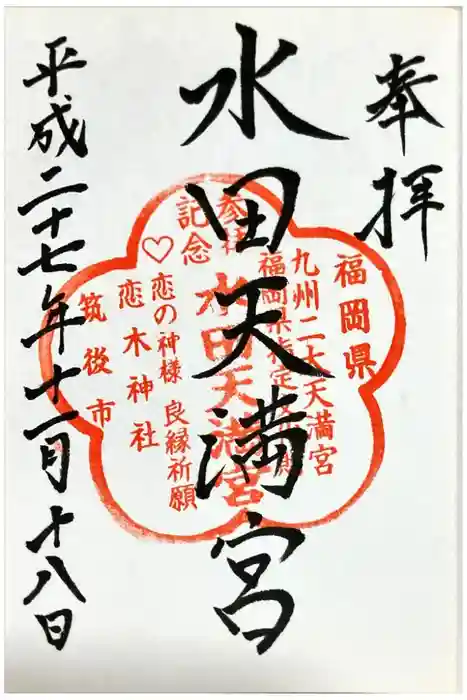 奉拝
水田天満宮
平成二十七年十一月十八日
福岡県
九州二大天満宮
福岡県指定文化財
水田天満宮
参拝
記念
♡恋の神様 良縁祈願
恋木神社
筑後市